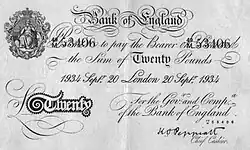 Bank of England
53406 to pay the Bearer 53406
the Sum of Twenty Pounds
1934 Sept. 20 London 20 Sept. 1934
For the Gov.r and Comp.a
Twenty of the Bank of England
K O Peppiatt
Chief Cashier.